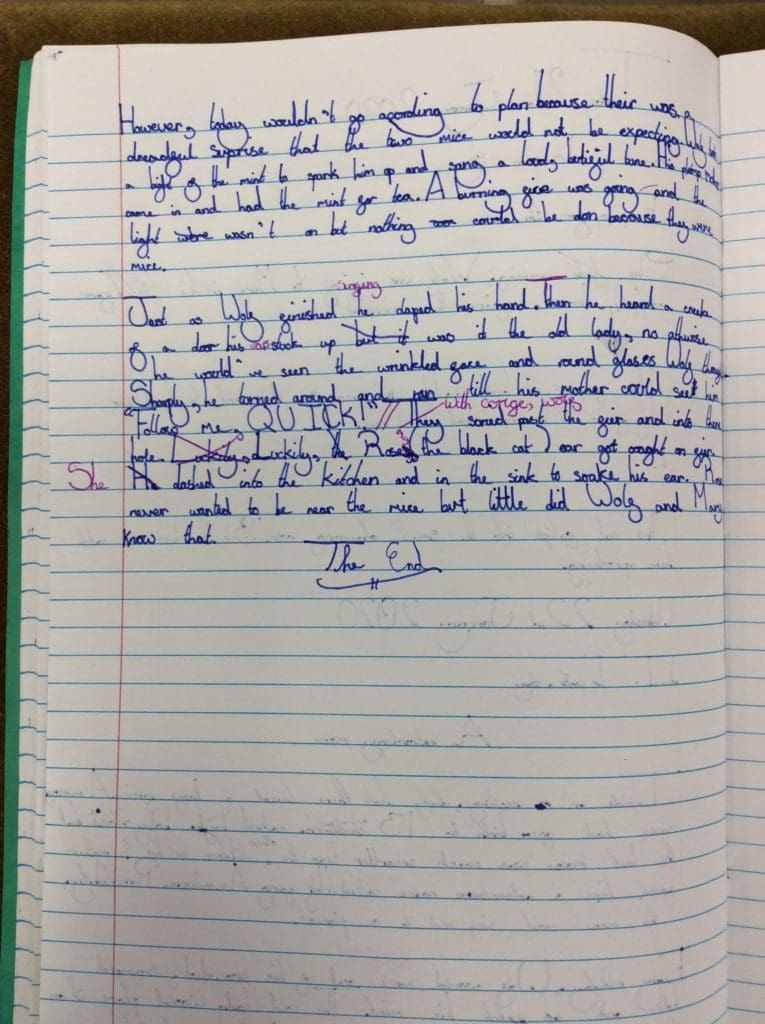 However, today wouldn't go acording to plan because their was a
dreadful suprise that the two mice would not be expecting. Wolf took
a bight of the mint to spark him up and sang a loud, betieful tune. His
came in and had the mint for tea. A burning fire was going and the
light were wasn't on but nothing coor courld be don because they were
mice.
singing
Just as Wolf finished he claped his hand. Then he heard a creake
of a door his stook up but it was it the old lady, no
he would've seen the wrinkled face and round glases Wolf
Sharply, he torned around and ran till his mother could see him
"Follow me, QUICK!" // They sored past the fier and into there
with
hole. Luckily, Luckily, the Rose (the black cat) ear got caught on fier.
She He dashed into the kitchen and in the sink to soake his ear. Rose
never wanted to be near the mice but little did Wolf and Mary
know that.
The End